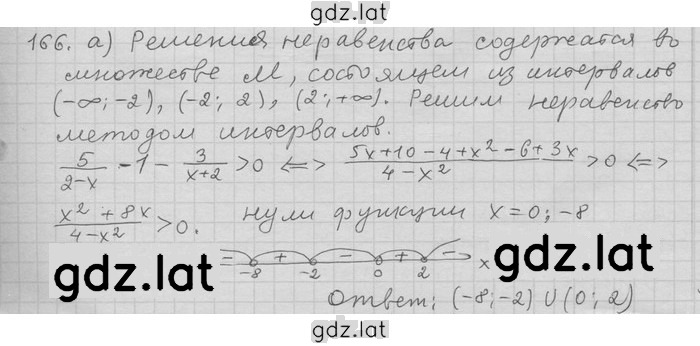 gdz.lat
166. а) Решения неравенства содержатся во
множестве M, состоящем из интервалов
(-∞; -2), (-2; 2), (2; +∞). Решим неравенство
методом интервалов.
5/(2-x) - 1 - 3/(x+2) > 0 <=> (5x+10-4+x²-6+3x)/(4-x²) > 0 <=>
(x²+8x)/(4-x²) > 0. нули функции x=0; -8
gdz.lat gdz.lat
- + - + -
-8 -2 0 2 x
gdz.lat gdz.lat
Ответ: (-8; -2) U (0; 2)
gdz.lat